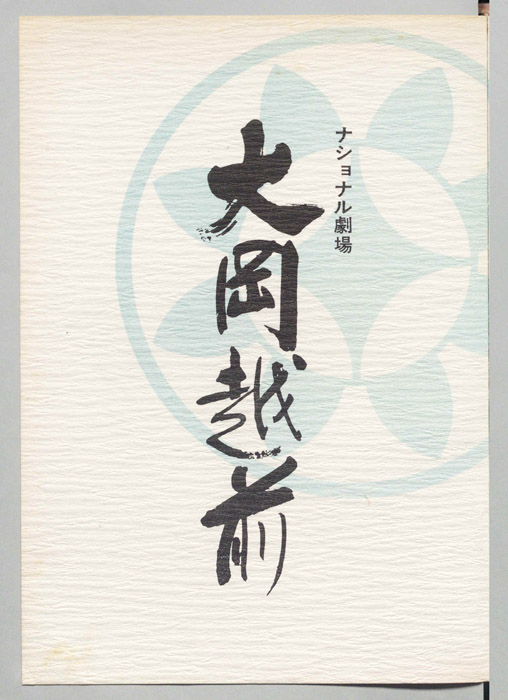 ナショナル劇場
大岡越前